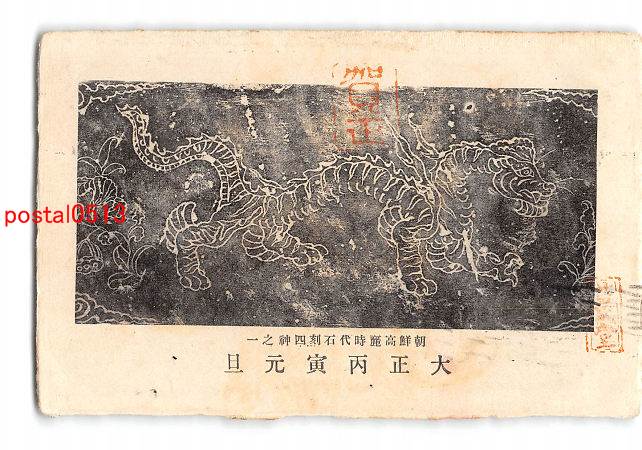 postal0513
朝鮮高麗時代石刻四神之一
大正丙寅元旦